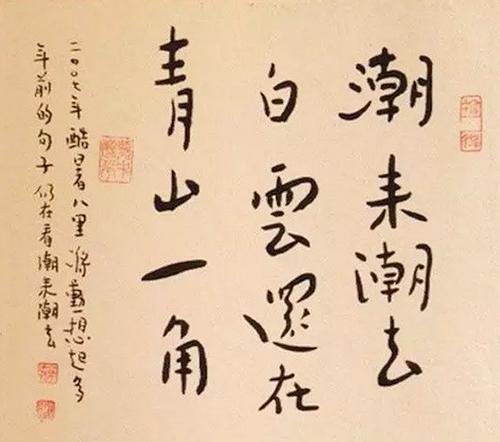 潮来潮去
白雲還在
青山一角
二〇〇七年酷暑八里將勳想起多
年前的句子仍在看潮来潮去